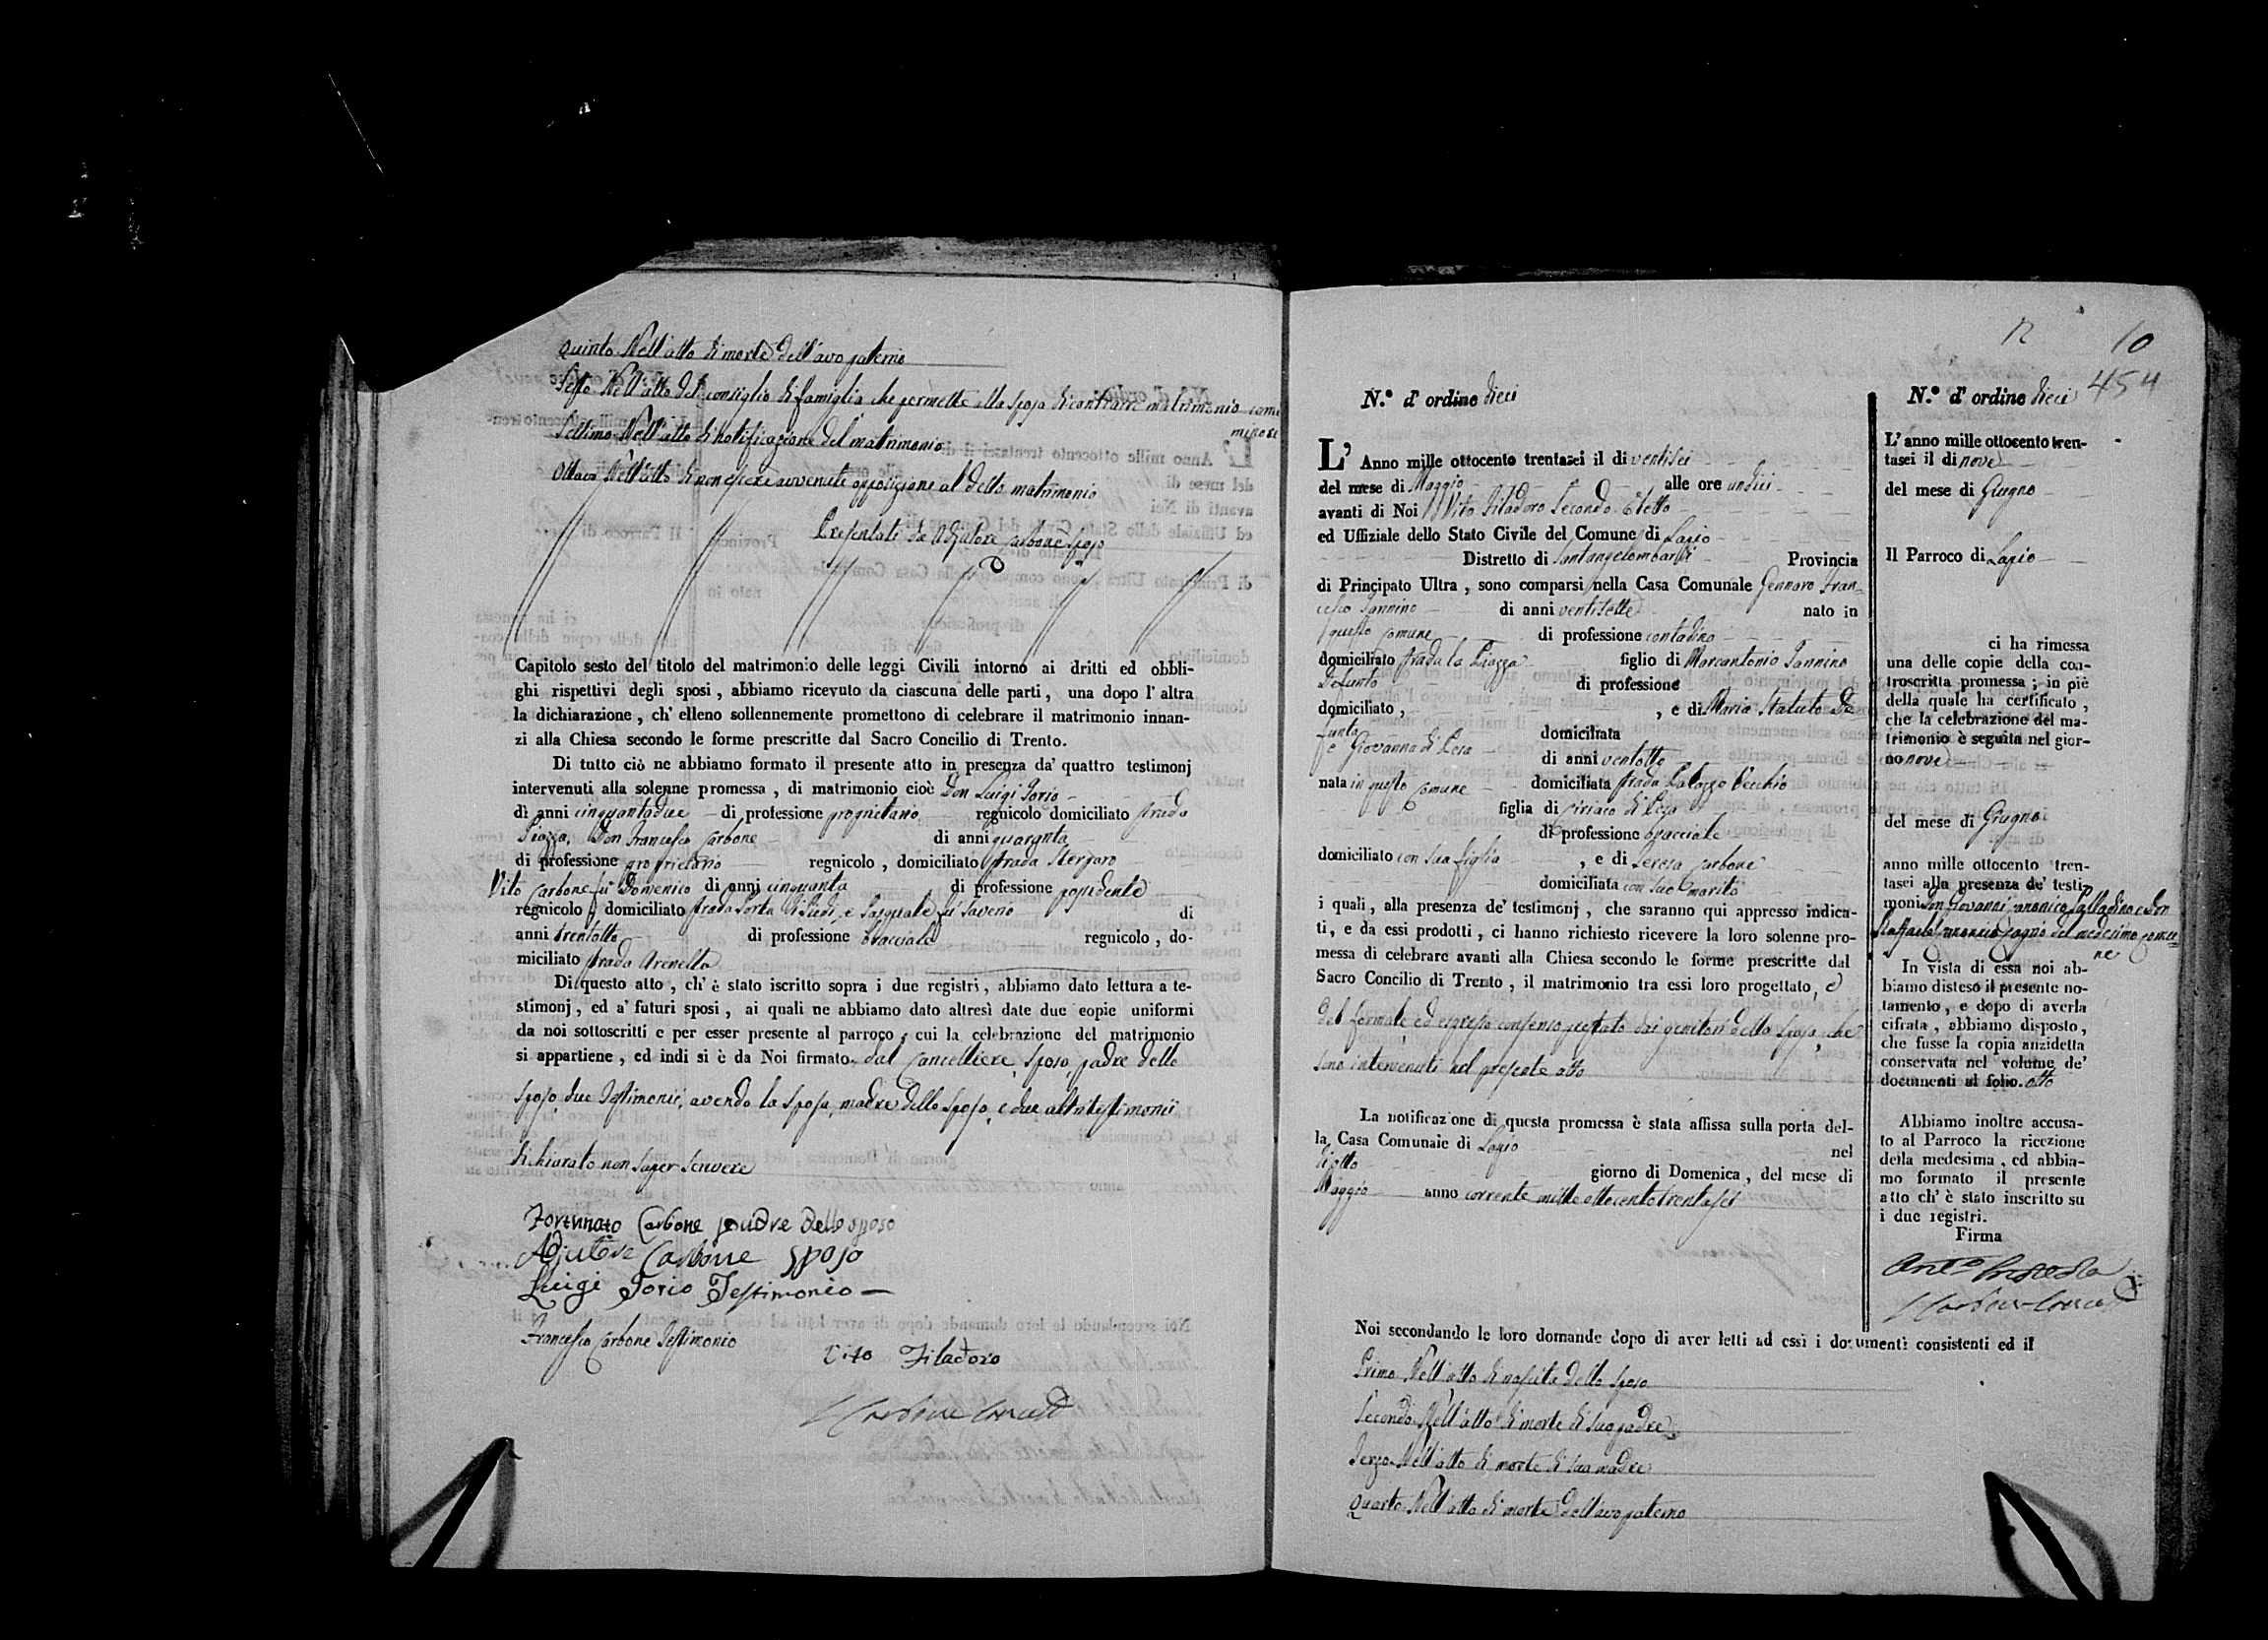 Quinto Nell'atto di morte dell'avo paterno
Sesto Nell'atto del consiglio di famiglia che permette alla sposa di contrarre matrimonio come
minore
Settimo Nell'atto di notificazione del matrimonio
Ottavo Nell'atto di non essere avvenute opposizione al detto matrimonio
Presentati da Adjutore Carbone sposo
Capitolo sesto del titolo del matrimonio delle leggi Civili intorno ai dritti ed obbli-
ghi rispettivi degli sposi, abbiamo ricevuto da ciascuna delle parti, una dopo l'altra
la dichiarazione, ch'elleno sollennemente promettono di celebrare il matrimonio innan-
zi alla Chiesa secondo le forme prescritte dal Sacro Concilio di Trento.
Di tutto ciò ne abbiamo formato il presente atto in presenza da' quattro testimonj
intervenuti alla solenne promessa, di matrimonio cioè Don Luigi Iorio
di anni cinquantadue di professione proprietario regnicolo domiciliato strada
Piazza, Don Francesco Carbone di anni quaranta
di professione proprietario regnicolo, domiciliato strada
Vito Carbone fu Domenico di anni cinquanta di professione possidente
regnicolo, domiciliato strada Porta e Pasquale fu Saverio di
anni trentotto di professione bracciale regnicolo, do-
miciliato strada Arenella
Di questo atto, ch'è stato iscritto sopra i due registri, abbiamo dato lettura a te-
stimonj, ed a' futuri sposi, ai quali ne abbiamo dato altresì date due copie uniformi
da noi sottoscritti e per esser presente al parroco, cui la celebrazione del matrimonio
si appartiene, ed indi si è da Noi firmato dal Cancelliere, sposo, padre dello
sposo, due Testimonii, avendo la sposa, madre dello sposo, e due altri testimonii
dichiarato non saper scrivere
Fortunato Carbone padre dello sposo
Adjutore Carbone sposo
Luigi Iorio Testimonio
Francesco Carbone Testimonio
Vito Filadoro
Carbone
12 10
454
N.º d'ordine dieci
L'Anno mille ottocento trentasei il di ventisei
del mese di Maggio alle ore undici
avanti di Noi Vito Filadoro Secondo Eletto
ed Uffiziale dello Stato Civile del Comune di Lapio
Distretto di Santangelombardi Provincia
di Principato Ultra, sono comparsi nella Casa Comunale Gennaro Fran-
cesco Iannino di anni ventisette nato in
questo comune di professione contadino
domiciliato strada la Piazza figlio di Marcantonio Iannino
Defunto di professione
domiciliato, , e di Maria Statuto De
funta domiciliata
e Giovanna di Pesa di anni ventotto
nata in questo Comune domiciliata strada Palazzo Vecchio
figlia di Ciriaco di Pesa
di professione bracciale
domiciliato con sua figlia , e di Teresa Carbone
domiciliata con suo marito
i quali, alla presenza de' testimonj, che saranno qui appresso indica-
ti, e da essi prodotti, ci hanno richiesto ricevere la loro solenne pro-
messa di celebrare avanti alla Chiesa secondo le forme prescritte dal
Sacro Concilio di Trento, il matrimonio tra essi loro progettato, e
del formale, ed espresso consenso prestato dai genitori della sposa, che
sono intervenuti nel presente atto
La notificazione di questa promessa è stata affissa sulla porta del-
la Casa Comunale di Lapio nel
di otto giorno di Domenica, del mese di
Maggio anno corrente mille ottocento trentasei
Noi secondando le loro domande dopo di aver letti ad essi i documenti consistenti ed il
Primo Nell'atto di nascita dello sposo
Secondo Nell'atto di morte di suo padre
Terzo Nell'atto di morte di sua madre
Quarto Nell'atto di morte dell'avo paterno
N.º d'ordine dieci
L'anno mille ottocento tren-
tasei il di nove
del mese di Giugno
Il Parroco di Lapio
ci ha rimessa
una delle copie della con-
troscritta promessa; in piè
della quale ha certificato,
che la celebrazione del ma-
trimonio è seguita nel gior-
no nove
del mese di Giugno
anno mille ottocento tren-
tasei alla presenza de' testi-
moni Don Giovanni canonico Palladino e Don
Raffaele canonico del medesimo comu-
ne
In vista di essa noi ab-
biamo disteso il presente no-
tamento, e dopo di averla
cifrata, abbiamo disposto,
che fusse la copia anzidetta
conservata nel volume de'
documenti al folio otto
Abbiamo inoltre accusa-
to al Parroco la ricezione
della medesima, ed abbia-
mo formato il presente
atto ch'è stato inscritto su
i due registri.
Firma